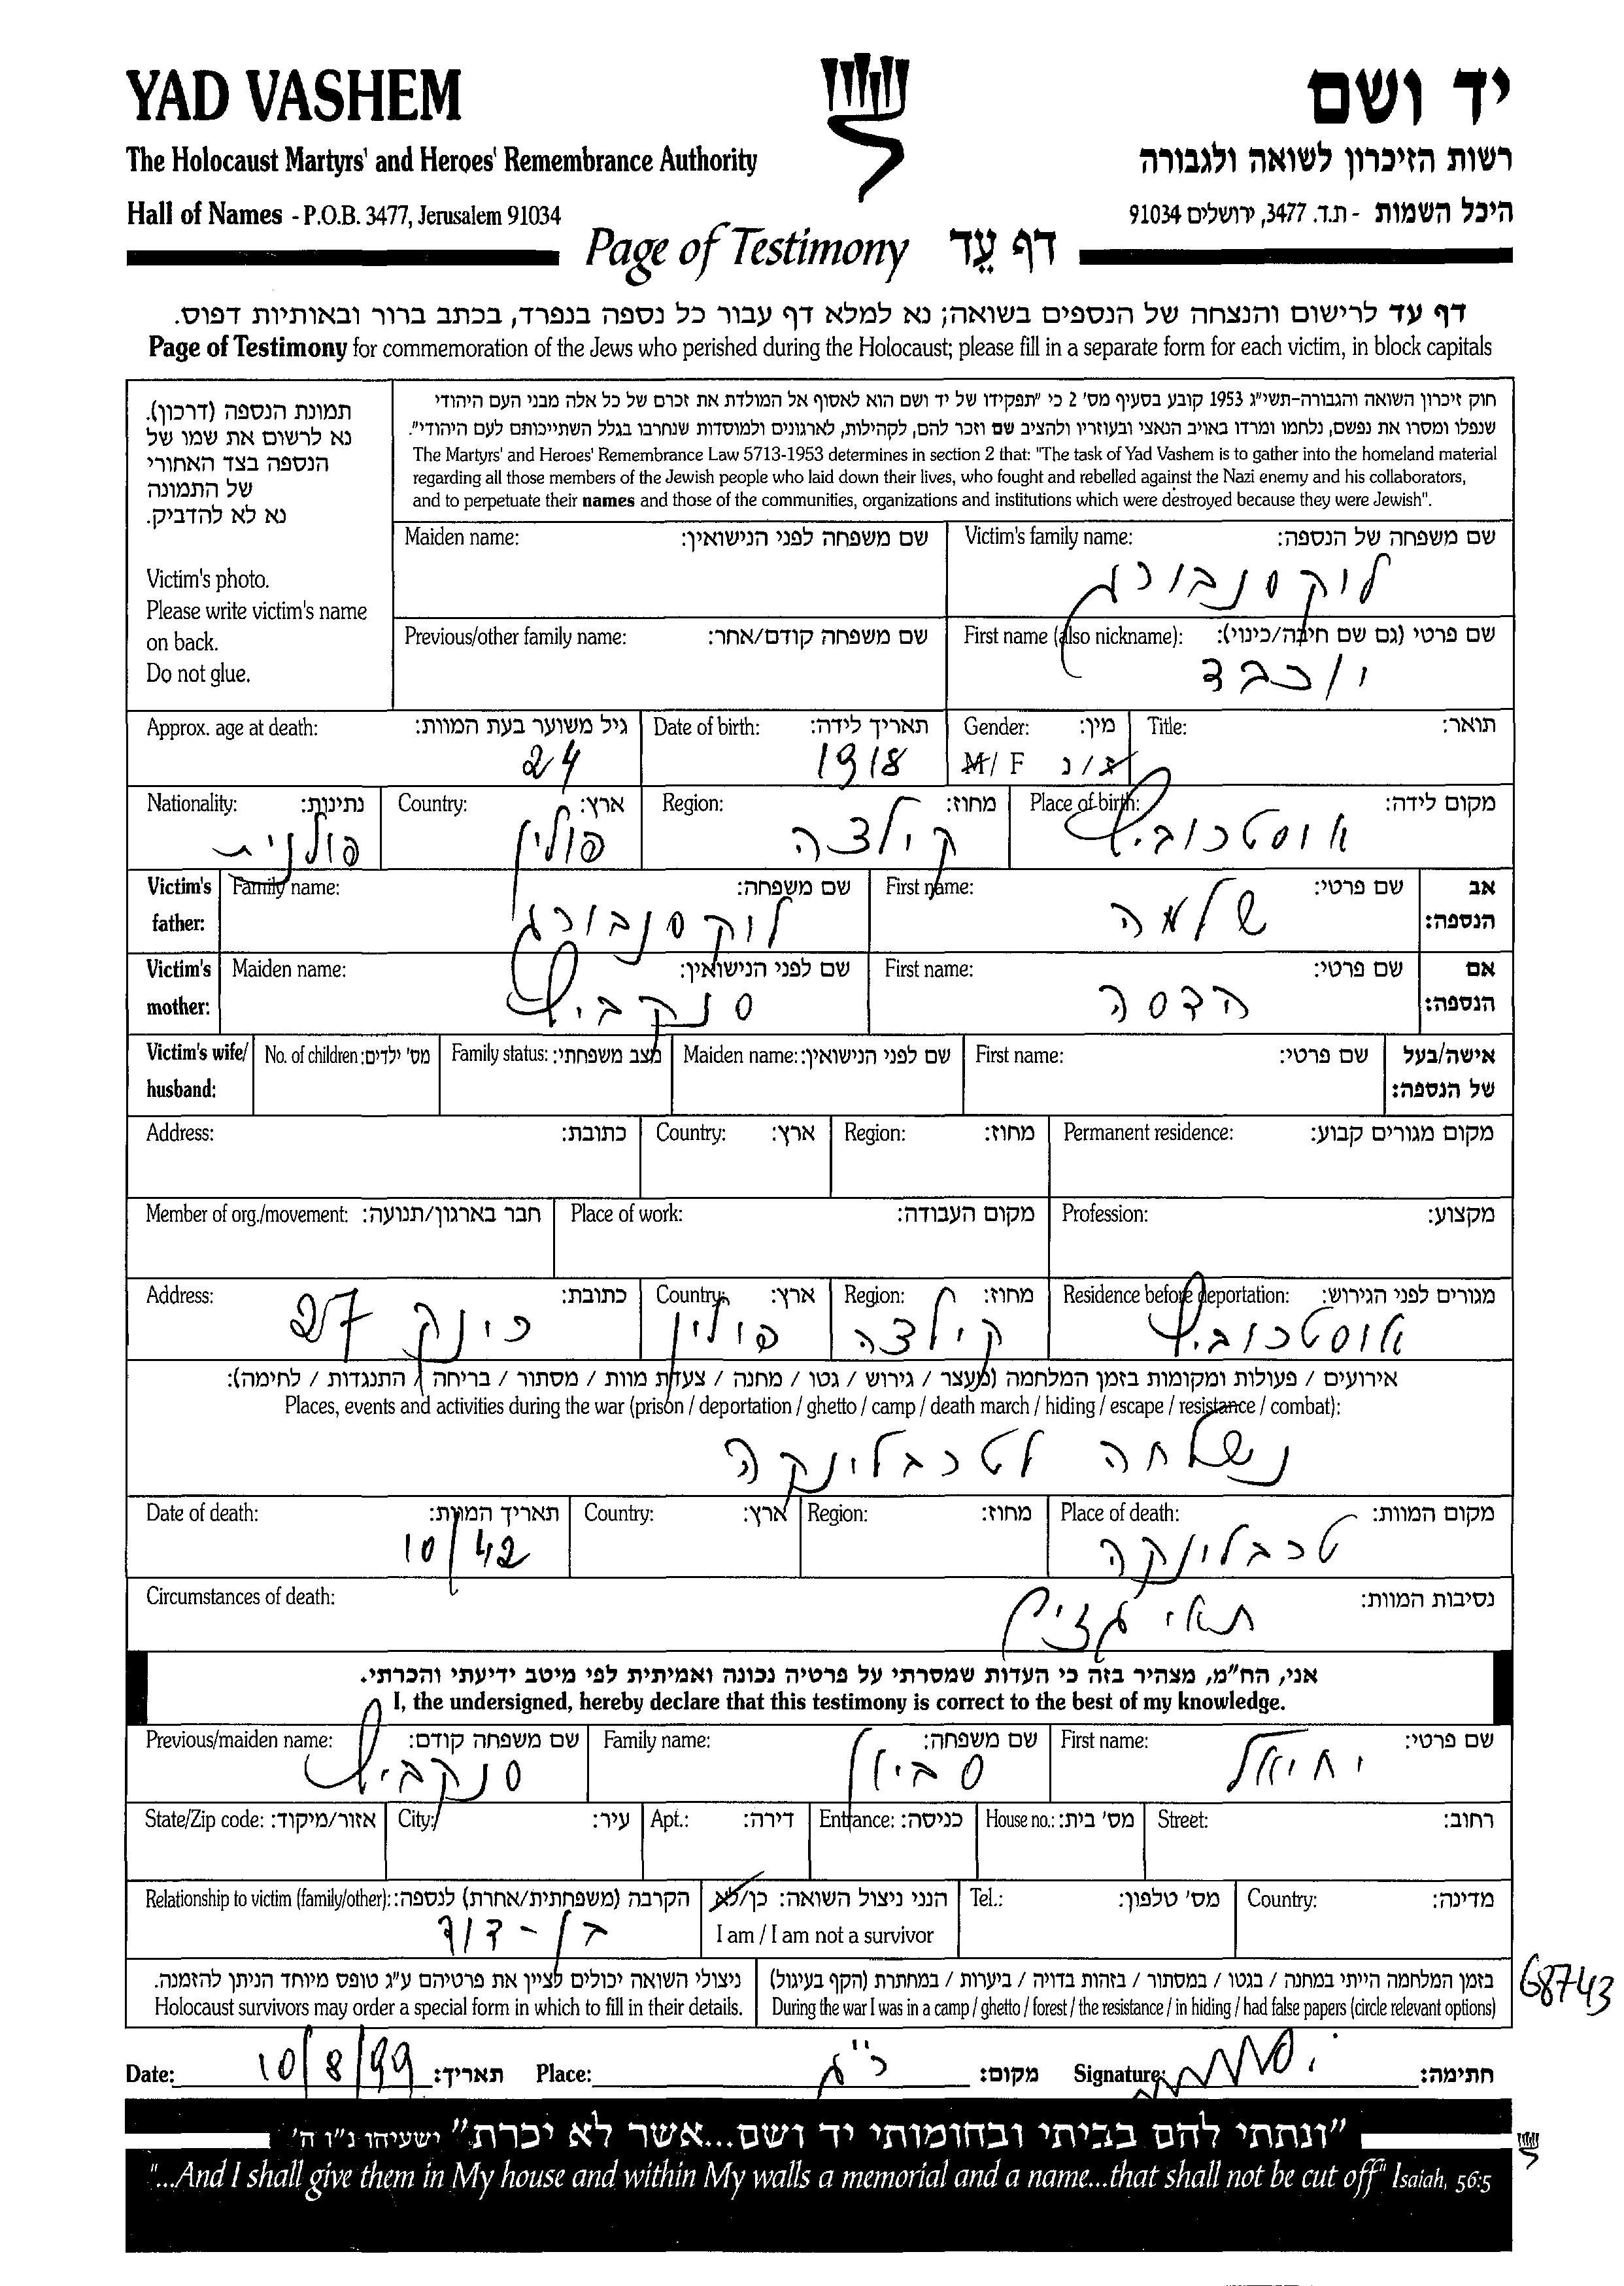 YAD VASHEM
יד ושם
The Holocaust Martyrs' and Heroes' Remembrance Authority
רשות הזיכרון לשואה ולגבורה
Hall of Names - P.O.B. 3477, Jerusalem 91034
היכל השמות - ת.ד. 3477, ירושלים 91034
Page of Testimony דף עֵד
דף עד לרישום והנצחה של הנספים בשואה; נא למלא דף עבור כל נספה בנפרד, בכתב ברור ובאותיות דפוס.
Page of Testimony for commemoration of the Jews who perished during the Holocaust; please fill in a separate form for each victim, in block capitals
תמונת הנספה (דרכון).
נא לרשום את שמו של
הנספה בצד האחורי
של התמונה
נא לא להדביק.
Victim's photo.
Please write victim's name
on back.
Do not glue.
חוק זיכרון השואה והגבורה-תשי"ג 1953 קובע בסעיף מס' 2 כי "תפקידו של יד ושם הוא לאסוף אל המולדת את זכרם של כל אלה מבני העם היהודי
שנפלו ומסרו את נפשם, נלחמו ומרדו באויב הנאצי ובעוזריו ולהציב שם וזכר להם, לקהילות, לארגונים ולמוסדות שנחרבו בגלל השתייכותם לעם היהודי".
The Martyrs' and Heroes' Remembrance Law 5713-1953 determines in section 2 that: "The task of Yad Vashem is to gather into the homeland material
regarding all those members of the Jewish people who laid down their lives, who fought and rebelled against the Nazi enemy and his collaborators,
and to perpetuate their names and those of the communities, organizations and institutions which were destroyed because they were Jewish".
Victim's family name: שם משפחה של הנספה:
לוקסנבורג
Maiden name: שם משפחה לפני הנישואין:
First name (also nickname): שם פרטי (גם שם חיבה/כינוי):
יוכבד
Previous/other family name: שם משפחה קודם/אחר:
Title: תואר:
Gender: מין:
M/ F ז/נ
Date of birth: תאריך לידה:
1918
Approx. age at death: גיל משוער בעת המוות:
24
Place of birth: מקום לידה:
אוסטרוביץ
Region: מחוז:
קילצה
Country: ארץ:
פולין
Nationality: נתינות:
פולנית
Victim's father: אב הנספה:
First name: שם פרטי:
שלמה
Family name: שם משפחה:
לוקסנבורג
Victim's mother: אם הנספה:
First name: שם פרטי:
הדסה
Maiden name: שם לפני הנישואין:
סנקביץ
Victim's wife/ husband: אישה/בעל של הנספה:
First name: שם פרטי:
Maiden name: שם לפני הנישואין:
Family status: מצב משפחתי:
No. of children: מס' ילדים:
Permanent residence: מקום מגורים קבוע:
Region: מחוז:
Country: ארץ:
Address: כתובת:
Profession: מקצוע:
Place of work: מקום העבודה:
Member of org./movement: חבר בארגון/תנועה:
Residence before deportation: מגורים לפני הגירוש:
אוסטרוביץ
Region: מחוז:
קילצה
Country: ארץ:
פולין
Address: כתובת:
רינק 27
אירועים / פעולות ומקומות בזמן המלחמה (מעצר / גירוש / גטו / מחנה / צעדת מוות / מסתור / בריחה / התנגדות / לחימה):
Places, events and activities during the war (prison / deportation / ghetto / camp / death march / hiding / escape / resistance / combat):
נשלחה לטרבלינקה
Place of death: מקום המוות:
טרבלינקה
Region: מחוז:
Country: ארץ:
Date of death: תאריך המוות:
10/42
Circumstances of death: נסיבות המוות:
תאי גזים
אני, הח"מ, מצהיר בזה כי העדות שמסרתי על פרטיה נכונה ואמיתית לפי מיטב ידיעתי והכרתי.
I, the undersigned, hereby declare that this testimony is correct to the best of my knowledge.
First name: שם פרטי:
יחיאל
Family name: שם משפחה:
סביון
Previous/maiden name: שם משפחה קודם:
סנקביץ
Street: רחוב:
House no.: מס' בית:
Entrance: כניסה:
Apt.: דירה:
City: עיר:
State/Zip code: אזור/מיקוד:
Country: מדינה:
Tel.: מס' טלפון:
הנני ניצול השואה: כן/לא
I am / I am not a survivor
Relationship to victim (family/other): הקרבה (משפחתית/אחרת) לנספה:
בן-דוד
בזמן המלחמה הייתי במחנה / בגטו / במסתור / בזהות בדויה / ביערות / במחתרת (הקף בעיגול)
During the war I was in a camp / ghetto / forest / the resistance / in hiding / had false papers (circle relevant options)
ניצולי השואה יכולים לציין את פרטיהם ע"ג טופס מיוחד הניתן להזמנה.
Holocaust survivors may order a special form in which to fill in their details.
68743
Date: 10/8/99 תאריך: Place: ר"ג מקום: Signature: חתימה:
"ונתתי להם בביתי ובחומותי יד ושם...אשר לא יכרת" ישעיהו נ"ו ה'
"...And I shall give them in My house and within My walls a memorial and a name...that shall not be cut off" Isaiah, 56:5